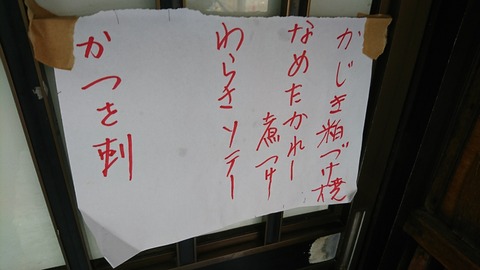 かじき粕づけ焼
なめたかれー
煮つけ
わらさソテー
かつを刺